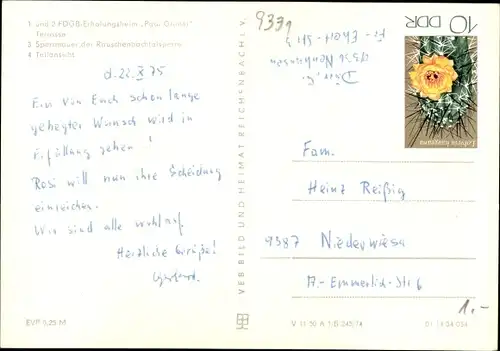 1 und 2 FDGB-Erholungsheim „Paul Gruner"
Terrasse
3 Sperrmauer der Rauschenbachtalsperre
4 Teilansicht
d. 22. X 75
Ein von Euch schon lange
gehegter Wunsch wird in
Erfüllung gehen!
Rosi will nun ihre Scheidung
einreichen.
Wir sind alle wohlauf
Herzliche Grüße!
Gerhard.
EVP 0,25 M
VEB BILD UND HEIMAT REICHENBACH I. V.
9331
9336 Neuhausen
Fr.-Ebert-Str 3
10 DDR
Fam.
Heinz Reißig
9387 Niederwiesa
A.-Emmerlich-Str 6
V 11 50 A 1/B 245/74
01 13 04 034
1.-